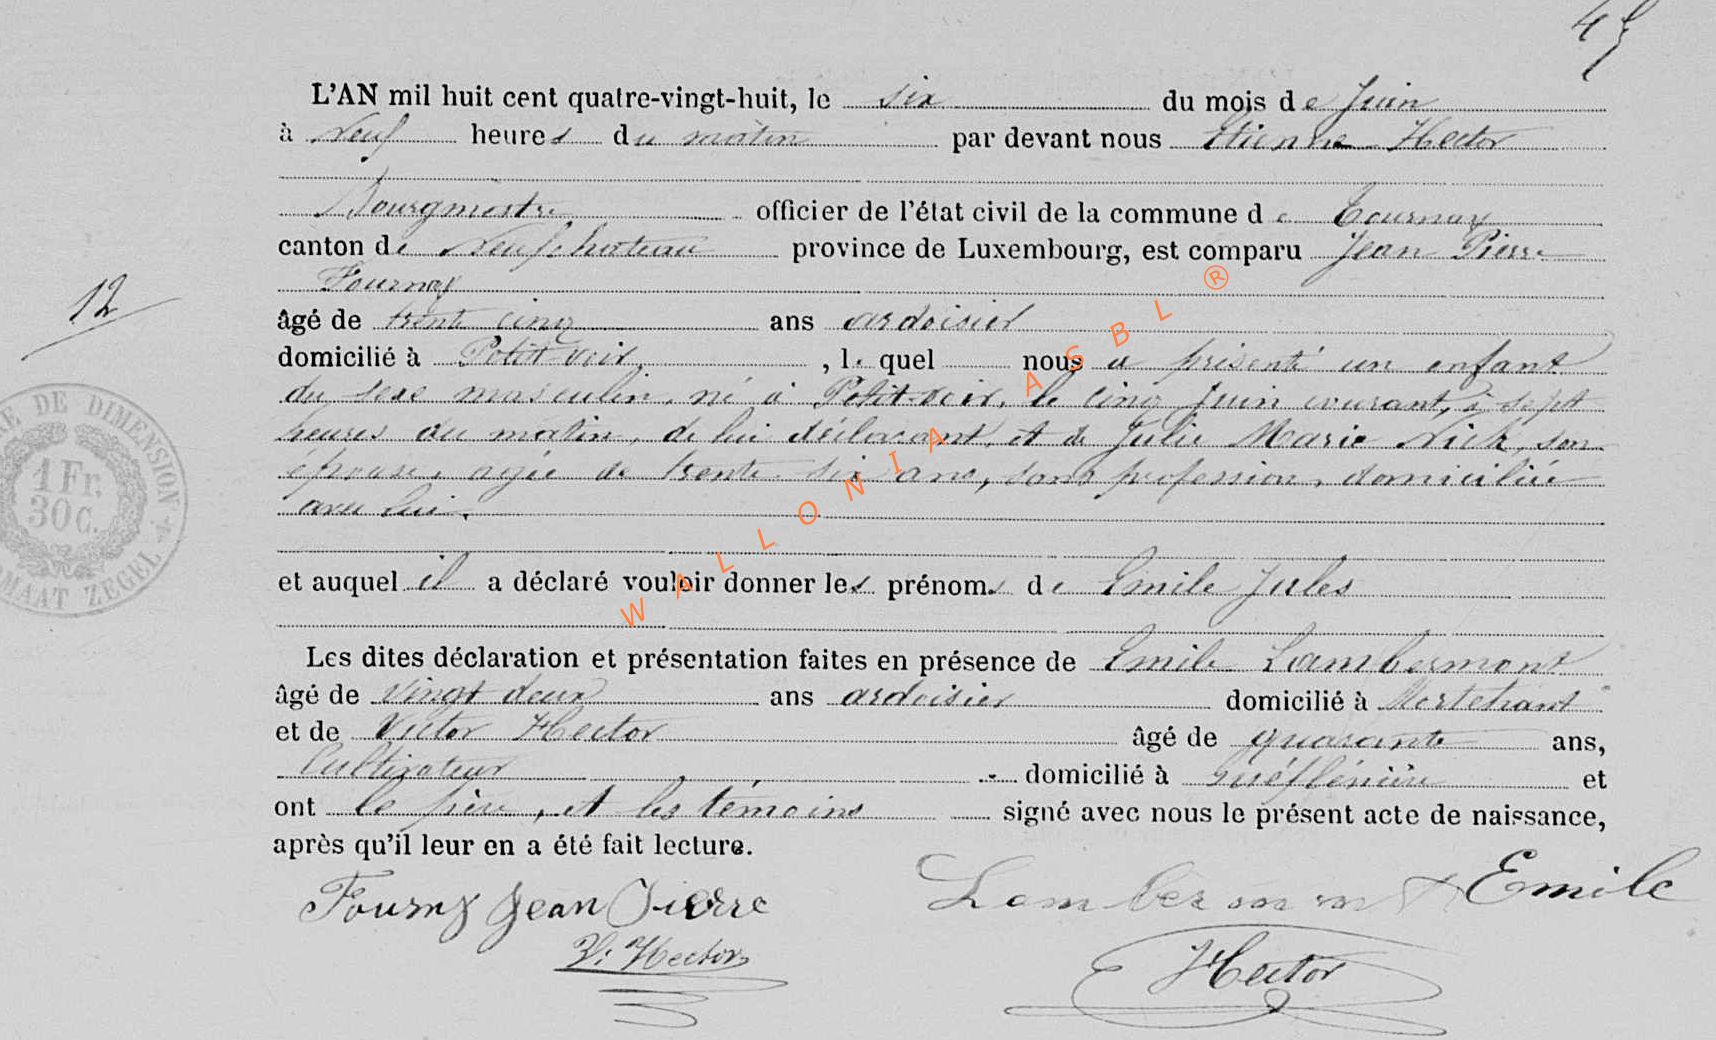 45
L'AN mil huit cent quatre-vingt-huit, le six du mois de Juin
à Neuf heures du matin par devant nous Etienne Hector
Bourgmestre officier de l'état civil de la commune de Tournay
canton de Neufchateau province de Luxembourg, est comparu Jean Pierre
Fournay
12
âgé de trente cinq ans ardoisier
domicilié à Petit-voir, lequel nous a présenté un enfant
du sexe masculin, né à Petit-voir, le cinq Juin courant, à sept
heures du matin, de lui déclarant, et de Julie Marie Nick, son
épouse, agée de trente six ans, sans profession, domiciliée
avec lui.
et auquel il a déclaré vouloir donner les prénoms de Emile Jules
Les dites déclaration et présentation faites en présence de Emile Lambermont
âgé de vingt deux ans ardoisier domicilié à Mortehant
et de Victor Hector âgé de quarante ans,
Cultivateur domicilié à et
ont le père, et les témoins signé avec nous le présent acte de naissance,
après qu'il leur en a été fait lecture.
Fourny Jean Pierre Lambermont Emile
V. Hector Hector
RE DE DIMENSION
1 Fr.
30 C.
MAAT ZEGEL
WALLONIA ASBL ®